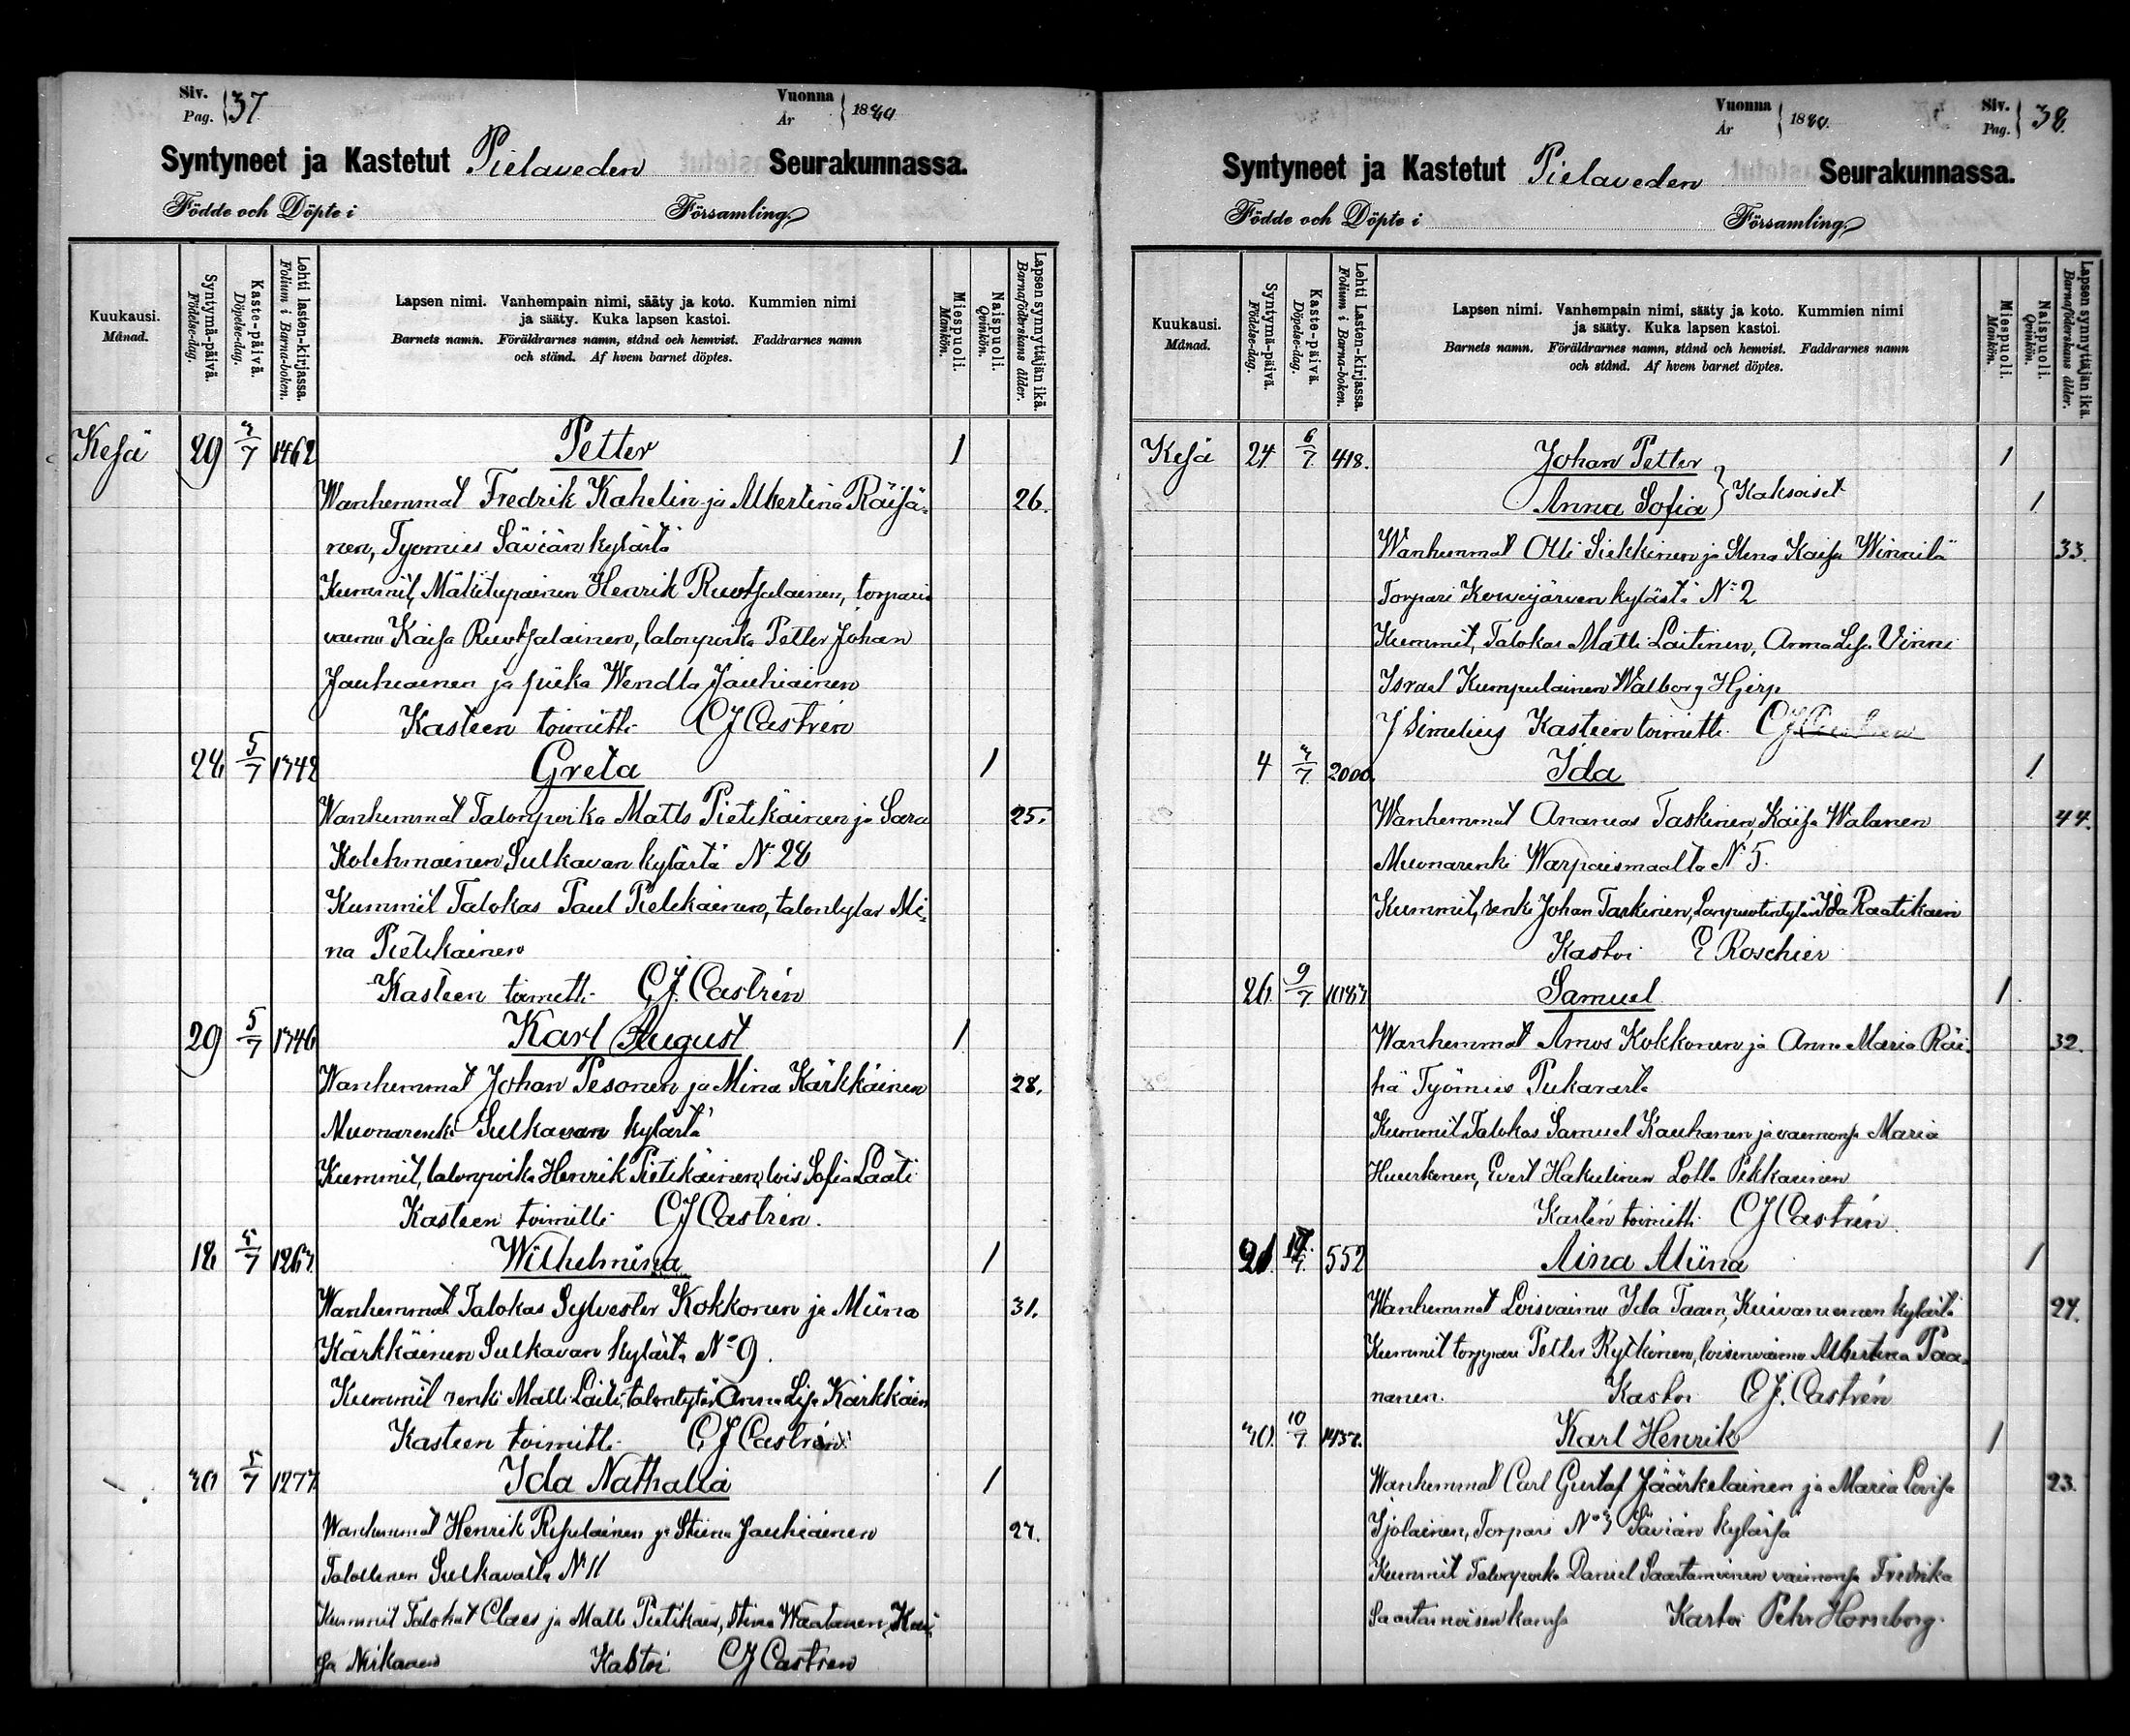 Siv. Pag. 37 Vuonna År 1880
Syntyneet ja Kastetut Pielaveden Seurakunnassa.
Födde och Döpte i Församling.
Kuukausi. Månad.
Syntymä-päivä. Födelse-dag.
Kaste-päivä. Döpelse-dag.
Lehti lasten-kirjassa. Folium i Barna-boken.
Lapsen nimi. Vanhempain nimi, sääty ja koto. Kummien nimi
ja sääty. Kuka lapsen kastoi.
Barnets namn. Föräldrarnes namn, stånd och hemvist. Faddrarnes namn
och stånd. Af hvem barnet döptes.
Miespuoli. Mankön.
Naispuoli. Qvinkön.
Lapsen synnyttäjän ikä. Barnaföderskans ålder.
Kesä 29 3/7 1462 Petter 1
Wanhemmat Fredrik Kahelin ja Albertina Räisä- 26.
nen, Tyomies Säviän kylästä
Kummit, Mäkitupainen Henrik Ruotsalainen, torparin
vaimo Kaisa Ruotsalainen, talonpoika Petter Johan
Jauhiainen ja piika Wendla Jauhiainen
Kasteen toimitti CJ Castrén
28 5/7 1742 Greta 1
Wanhemmat Talonpoika Matts Pietikäinen ja Sara 25.
Kolehmainen Sulkavan kylästä N:28
Kummit Talokas Paul Pietikäinen, talontytär Mi-
na Pietikäinen
Kasteen toimitti C.J. Castrén
29 5/7 1746 Karl August 1
Wanhemmat Johan Pesonen ja Mina Kärkkäinen 28.
Muonarenki Sulkavan kylästä
Kummit, talonpoika Henrik Pietikäinen, lois Sofia Laati
Kasteen toimitti CJ Castrén.
18 5/7 1263 Wilhelmina 1
Wanhemmat Talokas Sylvester Kokkonen ja Miina 31.
Kärkkäinen Sulkavan kylästä N:9.
Kummit renki Matti Laiti, talontytär Anna Lisa Kärkkäin
Kasteen toimitti CJ Castrén
30 5/7 1277 Ida Nathalia 1
Wanhemmat Henrik Ryhäläinen ja Stiina Jauhiainen 27.
Talollinen Sulkavalta N11
Kummit Talokat Claes ja Matti Pietikäin, Stina Waatanen, Kai-
sa Kastoi CJ Castrén
Vuonna År 1880. Siv. Pag. 38.
Syntyneet ja Kastetut Pielaveden Seurakunnassa.
Födde och Döpte i Församling.
Kuukausi. Månad.
Syntymä-päivä. Födelse-dag.
Kaste-päivä. Döpelse-dag.
Lehti Lasten-kirjassa. Folium i Barna-boken.
Lapsen nimi. Vanhempain nimi, sääty ja koto. Kummien nimi
ja sääty. Kuka lapsen kastoi.
Barnets namn. Föräldrarnes namn, stånd och hemvist. Faddrarnes namn
och stånd. Af hvem barnet döptes.
Miespuoli. Mankön.
Naispuoli. Qvinkön.
Lapsen synnyttäjän ikä. Barnaföderskans ålder.
Kesä 24 6/7 418. Johan Petter 1
Anna Sofia } Kaksoiset 1
Wanhemmat Olli Siekkinen ja Stena Kaisa Winnilä 33.
Torpari Kowejärven kylästä N:2
Kummit, Talokas Matti Laitinen, Anna Lisa Vinni
Israel Kumpulainen Walborg Hjerp
J Simelius Kasteen toimitti CJ Castrén
4 3/7 2000. Ida 1
Wanhemmat Ananias Taskinen, Kaisa Watanen 44.
Muonarenki Warpaismaalta N:5.
Kummit, renki Johan Taskinen, Ida Raatikain
Kastoi E Roschier
26 9/7 1083 Samuel 1
Wanhemmat Amos Kokkonen ja Anna Maria Räi- 32.
hä Tyomies Pukarasta
Kummit Talokas Samuel Kauhanen ja vaimonsa Maria
Evert Hakulinen Lotta Pekkarinen
Kasten toimitti CJ Castrén.
21 552 Aina Miina 1
Wanhemmat Loisvaimo Ida Kuivaniemen kylästä 24.
Kummit torppari Petter Rytkönen, loisenvaimo Albertina Paa-
nanen. Kastoi C.J. Castrén
30. 10/7 1437. Karl Henrik 1
Wanhemmat Carl Gustaf Jääskelainen ja Maria Lovisa 23.
Torpari N:3 Säviän kylässä
Kummit Talonpoika Daniel Saastamoinen vaimonsa Fredrika
Saastamoisen kanssa Kastoi Pehr Hornborg.